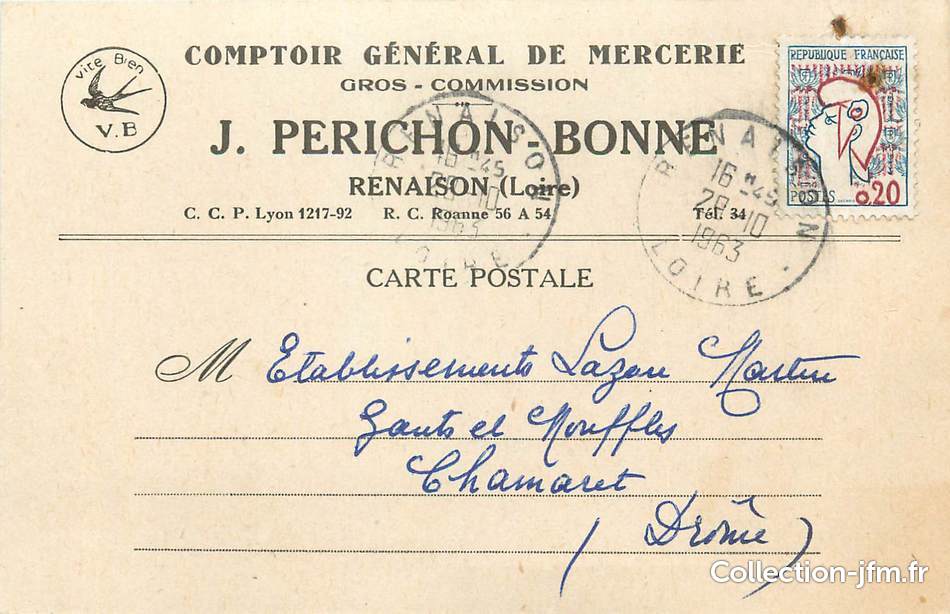 Vite Bien
V.B
COMPTOIR GÉNÉRAL DE MERCERIE
GROS - COMMISSION
J. PERICHON - BONNE
RENAISON (Loire)
C. C. P. Lyon 1217-92 R. C. Roanne 56 A 54 Tél. 34
REPUBLIQUE FRANÇAISE
POSTES
0,20
RENAISON
16 H 45
29-10
1963
LOIRE
RENAISON
16 H 45
29-10
1963
LOIRE
CARTE POSTALE
M Etablissements Lazare Martin
Gants et Mouffles
Chamaret
(Drôme)
Collection-jfm.fr